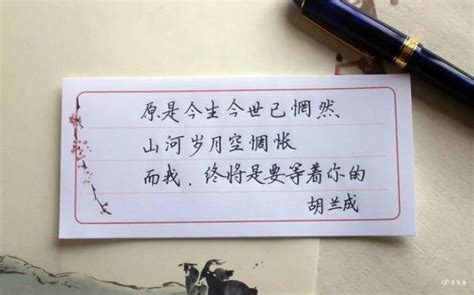 原是今生今世已惘然
山河岁月空惆怅
而我．终将是要等着你的
胡兰成